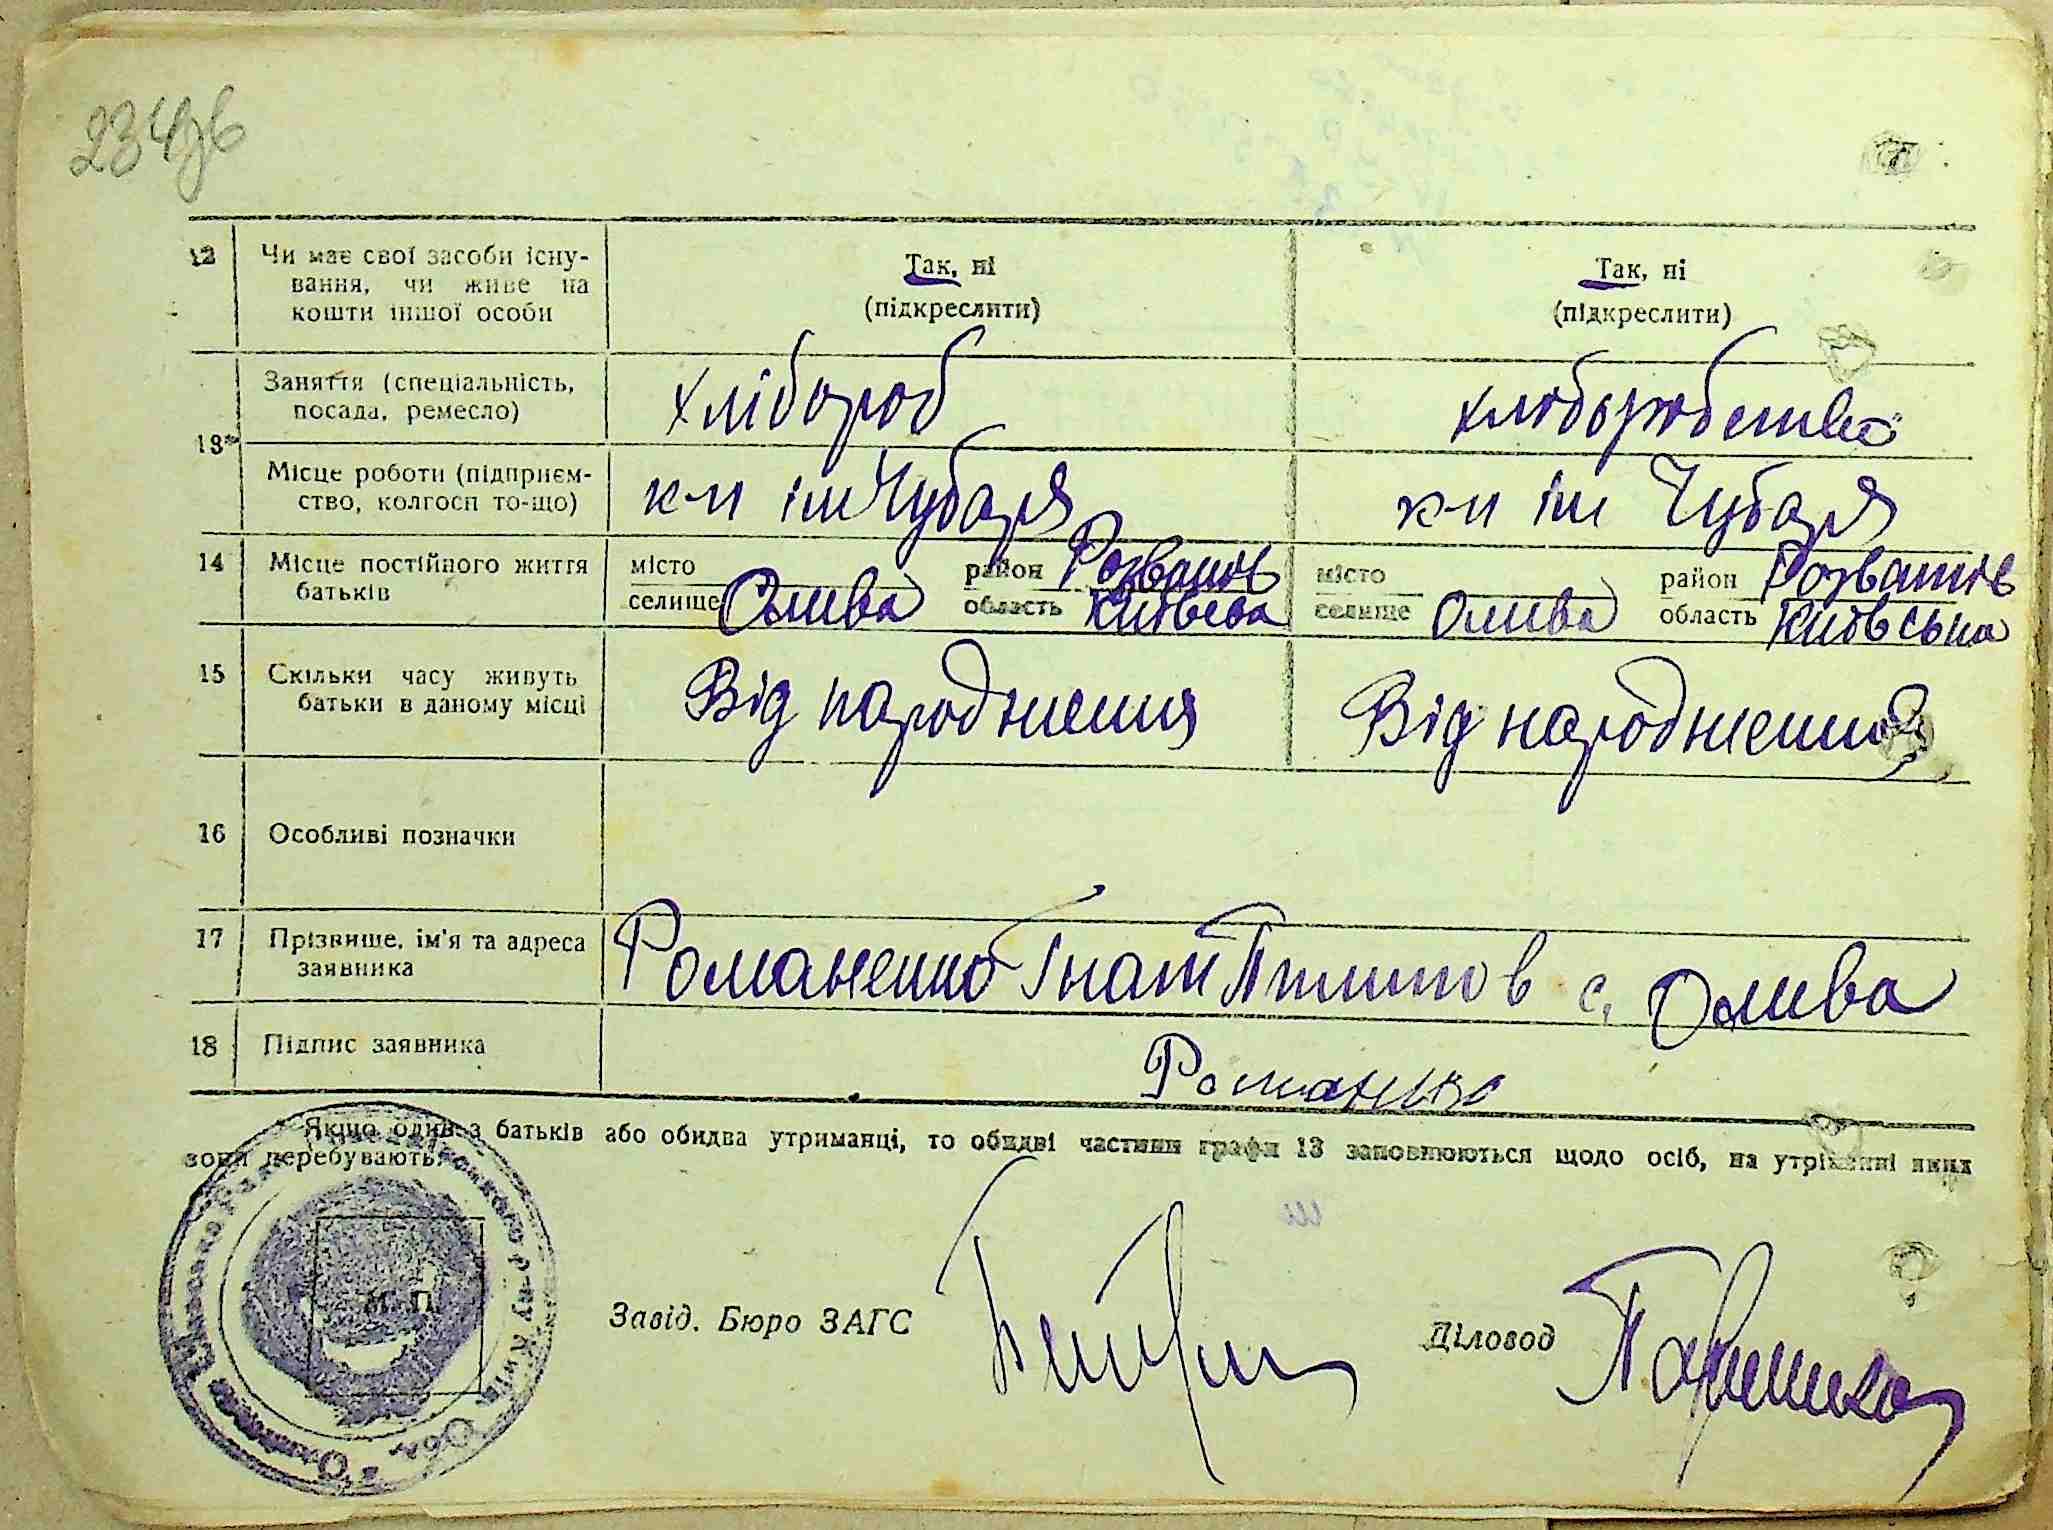 234зв
12 Чи має свої засоби існу-
вання, чи живе на
кошти іншої особи
Так, ні
(підкреслити)
Так, ні
(підкреслити)
13*
Заняття (спеціальність,
посада, ремесло)
хлібороб
хлоборобство
Місце роботи (підприєм-
ство, колгосп то-що)
к-п ім Чубаря
к-п ім Чубаря
14 Місце постійного життя
батьків
місто
селище Олива
район Розважів
область Київсва
місто
селище Олива
район Розважів
область Київська
15 Скільки часу живуть
батьки в даному місці
Від народження
Від народження
16 Особливі позначки
17 Прізвище, ім'я та адреса
заявника
Романенко Гнат с. Олива
18 Підпис заявника
Романенко
* Якщо один з батьків або обидва утриманці, то обидві частини графи 13 заповнюються щодо осіб, на утріманні яких
вони перебувають.
М. П.
Завід. Бюро ЗАГС
Діловод